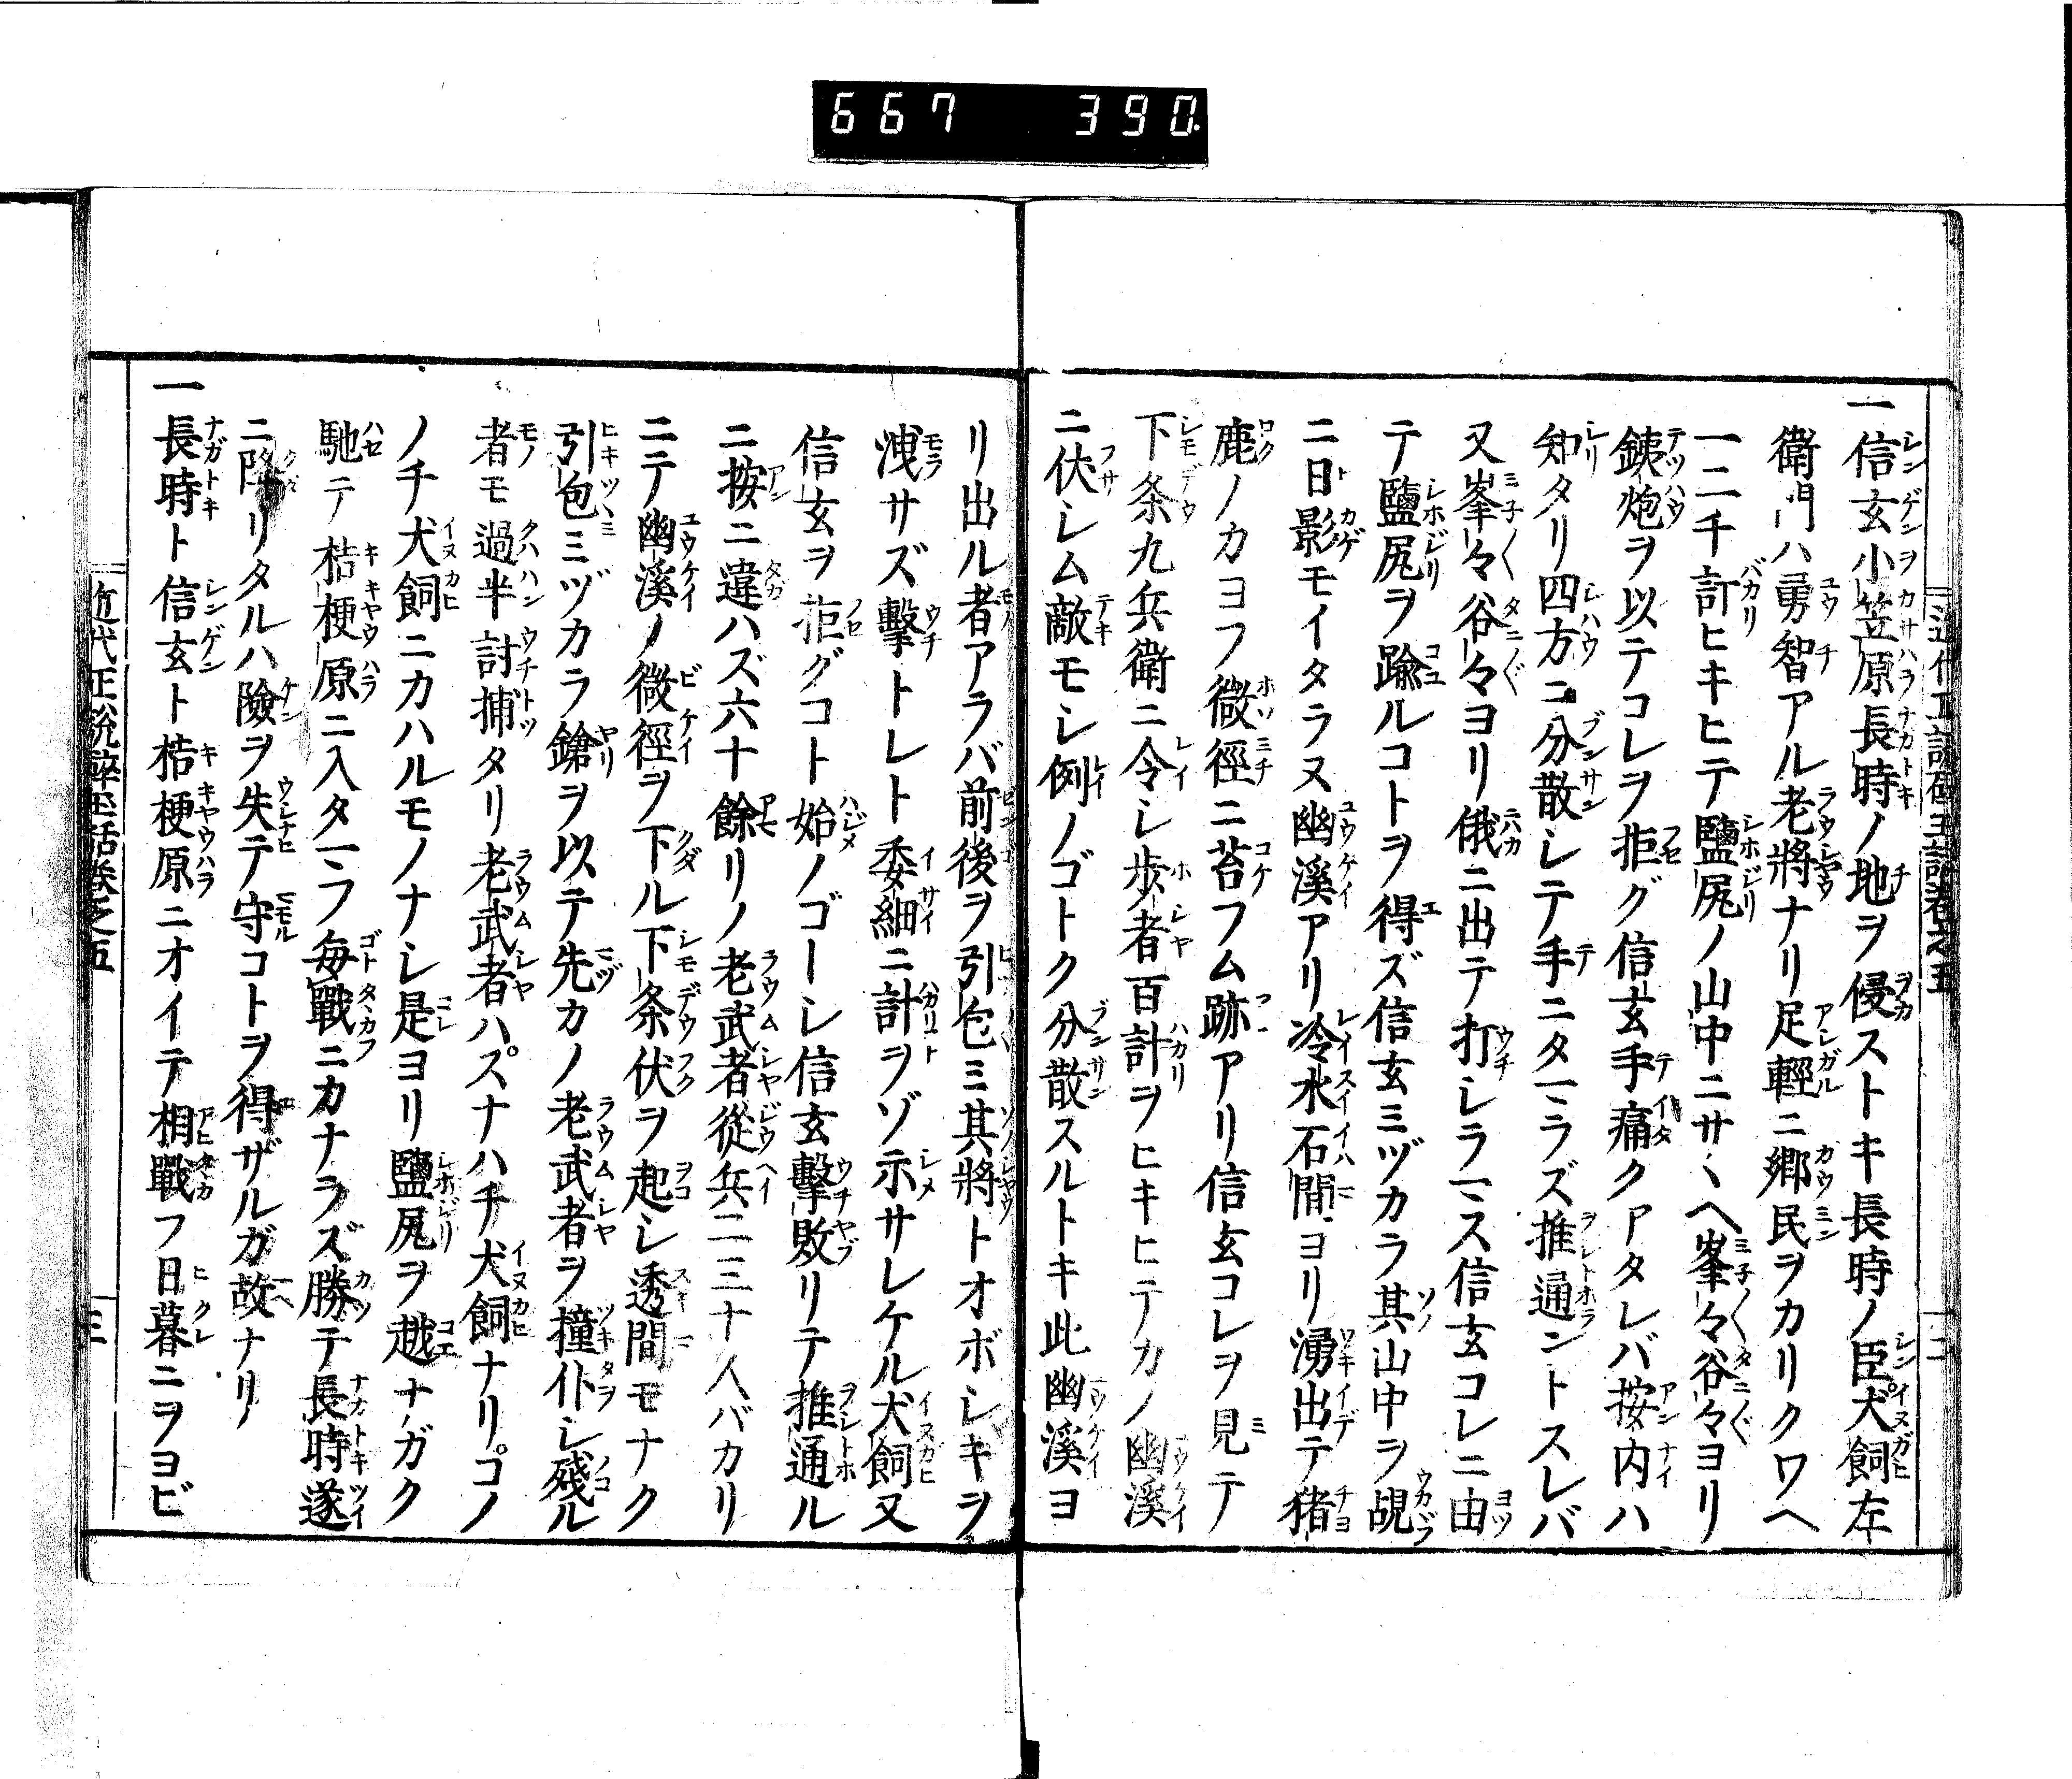 667 390
一信玄小笠原長時ノ地ヲ侵ストキ長時ノ臣犬飼左
衛門ハ勇智アル老將ナリ足輕ニ郷民ヲカリクワヘ
一二千計ヒキヒテ鹽尻ノ山中ニサヽヘ峯々谷々ヨリ
銕炮ヲ以テコレヲ拒グ信玄手痛クアタレバ按内ハ
知タリ四方ニ分散シテ手ニタマラズ推通ントスレバ
又峯々谷々ヨリ俄ニ出テ打シラマス信玄コレニ由
テ鹽尻ヲ踰ルコトヲ得ズ信玄ミヅカラ其山中ヲ覘
ニ日影モイタラヌ幽溪アリ冷水石間ヨリ湧出テ猪
鹿ノカヨフ微徑ニ苔フム跡アリ信玄コレヲ見テ
下条九兵衛ニ令シ歩者百計ヲヒキヒテカノ幽溪
ニ伏シム敵モシ例ノゴトク分散スルトキ此幽溪ヨ
リ出ル者アラバ前後ヲ引包ミ其將トオボシキヲ
洩サズ擊トレト委細ニ計ヲゾ示サレケル犬飼又
信玄ヲ拒グコト始ノゴトシ信玄擊敗リテ推通ル
ニ按ニ違ハズ六十餘リノ老武者從兵二三十人バカリ
ニテ幽溪ノ微徑ヲ下ル下条伏ヲ起シ透間モナク
引包ミヅカラ鎗ヲ以テ先カノ老武者ヲ撞仆シ殘ル
者モ過半討捕タリ老武者ハスナハチ犬飼ナリコノ
ノチ犬飼ニカハルモノナシ是ヨリ鹽尻ヲ越ナガク
馳テ桔梗原ニ入タマフ每戰ニカナラズ勝テ長時遂
ニ降リタルハ險ヲ失テ守コトヲ得ザルガ故ナリ
一長時ト信玄ト桔梗原ニオイテ相戰フ日暮ニヲヨビ
近代正說碎玉話卷之五